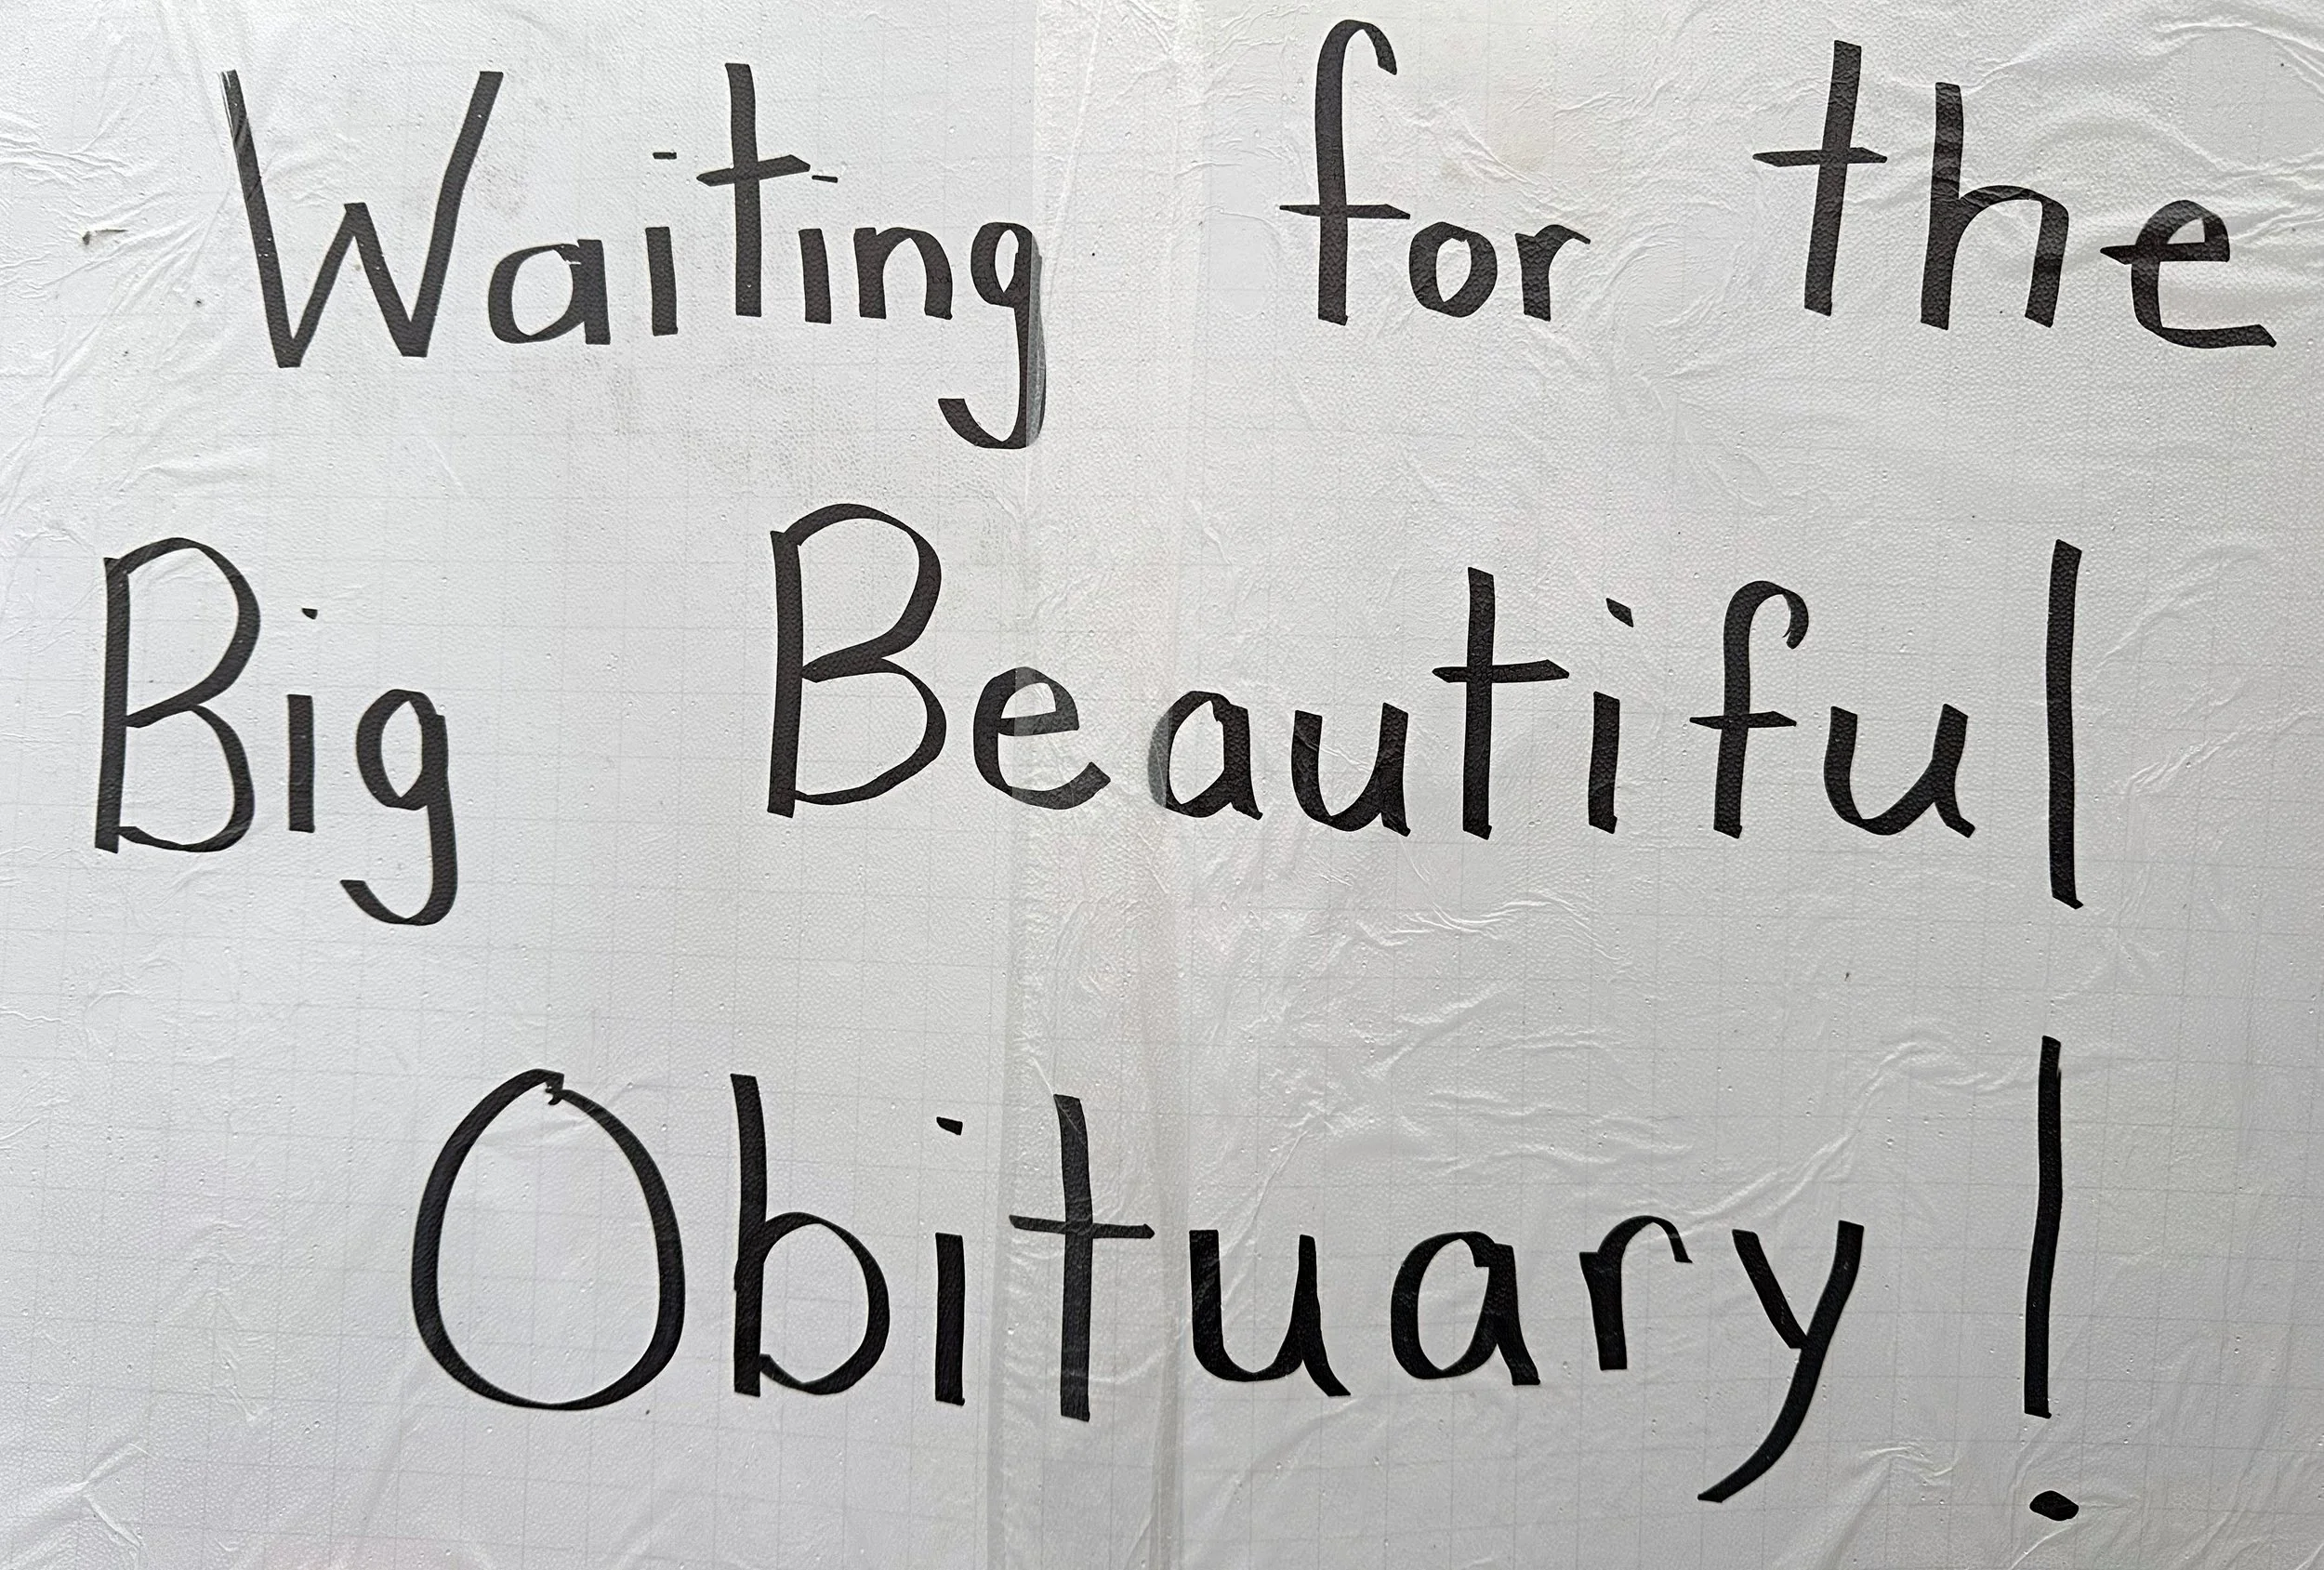 Waiting for the
Big Beautiful
Obituary!